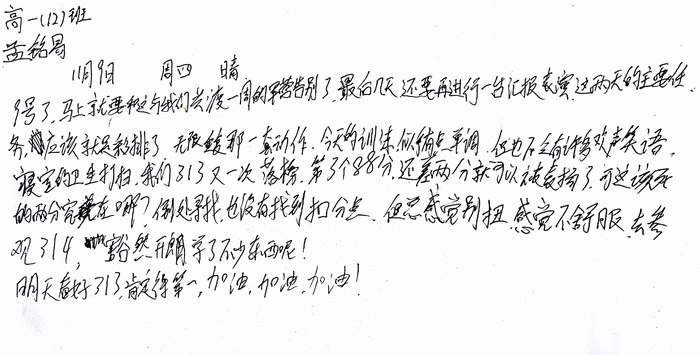 高一(12)班
孟铭昌
11月9日 周四 晴
9号了,马上就要和这与我们共渡一周的军营告别了,最后几天还要再进行一台汇报表演,这两天的主要任
务,应该就是彩排了 无限趋那一套动作,今天的训练似稍点单调,但也不乏有许多欢声笑语,
寝室的卫生打扫,我们313又一次落榜,第3个88分,还差两分就可以被表扬了,可这该死
的两分究竟在哪?倒处寻找,也没有找到扣分点,但总感觉别扭,感觉不舒服,去参
观314,豁然开朗,学了不少东西呢!
明天看好313,肯定得第一,加油,加油,加油!